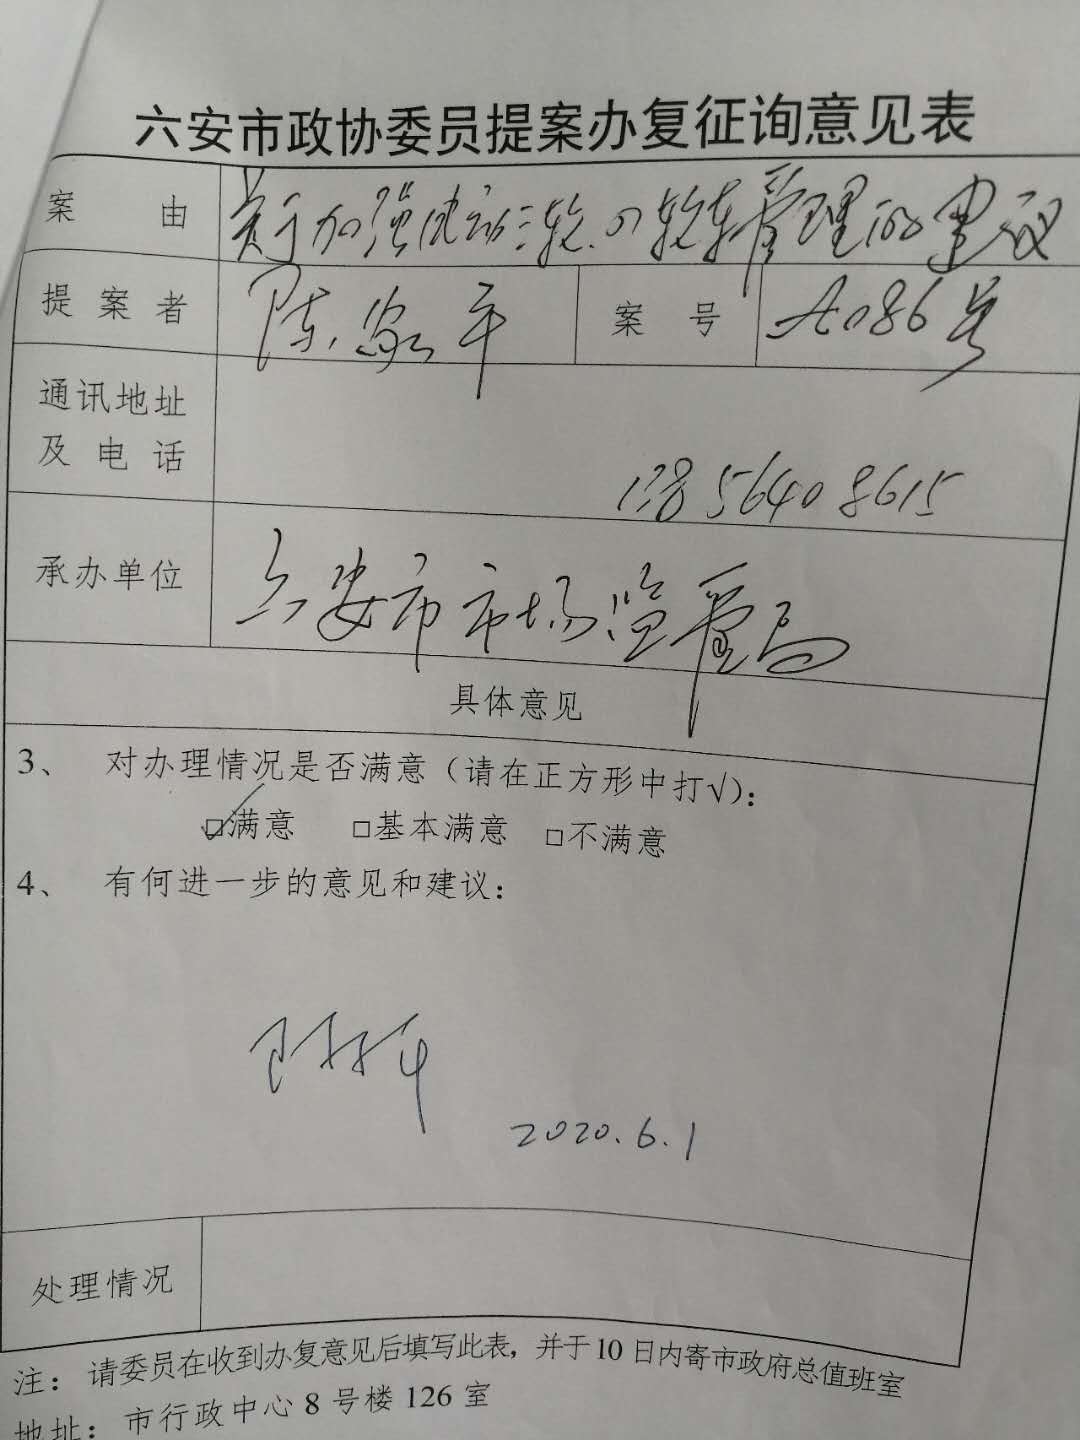 六安市政协委员提案办复征询意见表
案由 关于加强电动三轮、四轮车管理的建议
提案者 陈家平 案号 A086号
通讯地址
及电话 13856408615
承办单位 六安市市场监管局
具体意见
3、 对办理情况是否满意（请在正方形中打√）：
☑满意 □基本满意 □不满意
4、 有何进一步的意见和建议：
2020.6.1
处理情况
注： 请委员在收到办复意见后填写此表，并于10日内寄市政府总值班室
地址： 市行政中心8号楼126室